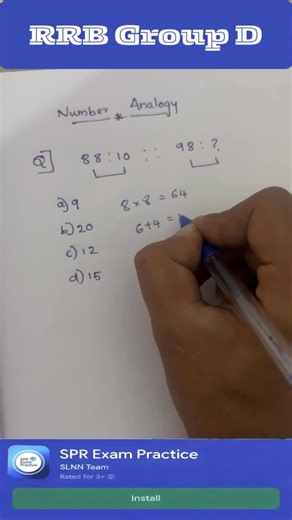 RRB Group D
Number Analogy
Q] 88 : 10 :: 98 : ?
a) 9
8 × 8 = 64
b) 20
6 + 4 =
c) 12
d) 15
SPR Exam Practice
SLNN Team
Rated for 3+
Install